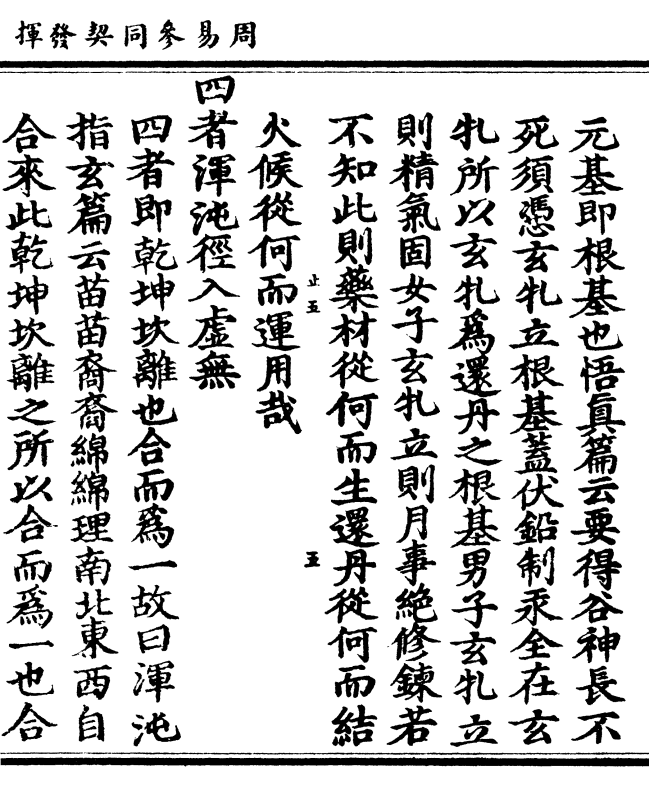 周易參同契發揮
元基即根基也悟眞篇云要得谷神長不
死須憑玄牝立根基蓋伏鉛制汞全在玄
牝所以玄牝爲還丹之根基男子玄牝立
則精氣固女子玄牝立則月事絶修鍊若
不知此則藥材從何而生還丹從何而結
止五
五
火候從何而運用哉
四者渾沌徑入虛無
四者即乾坤坎離也合而爲一故曰渾沌
指玄篇云苗苗裔裔綿綿理南北東西自
合來此乾坤坎離之所以合而爲一也合